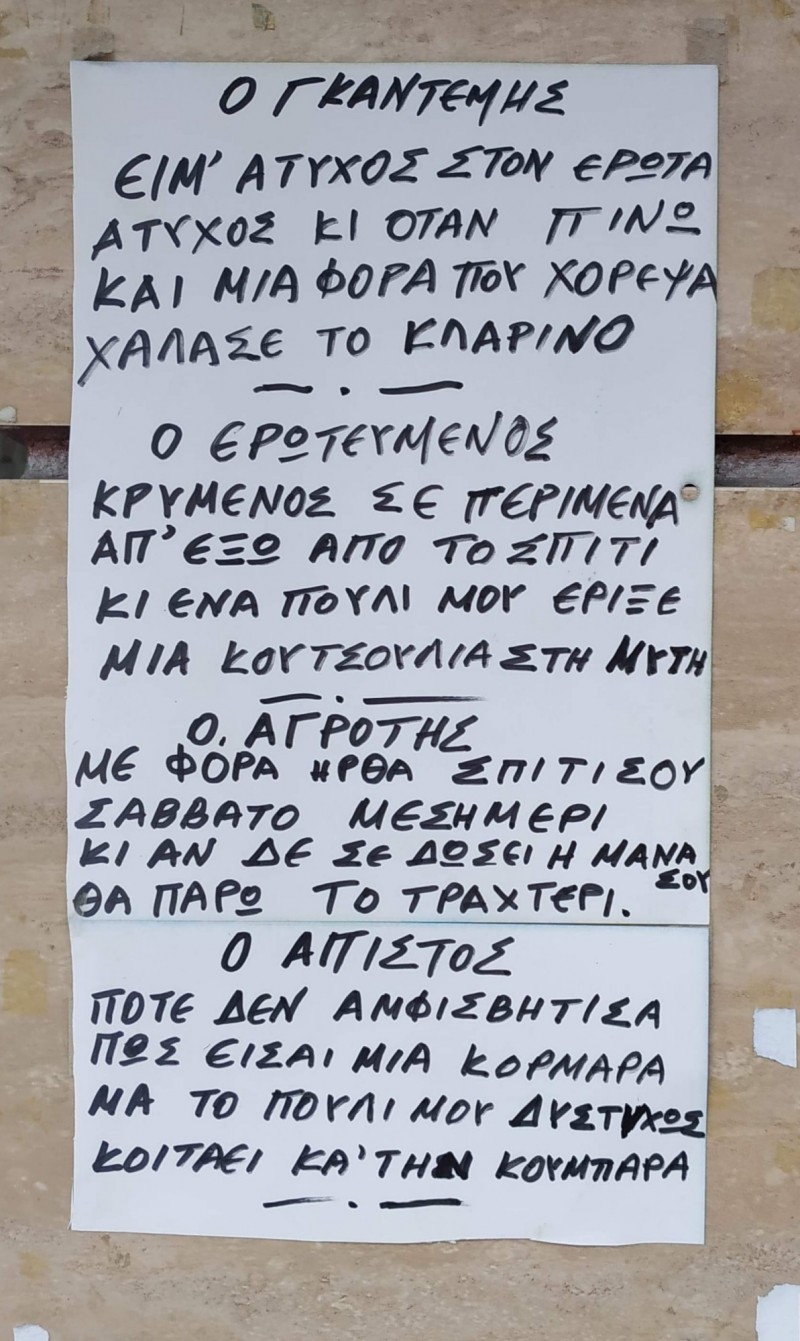 Ο ΓΚΑΝΤΕΜΗΣ
ΕΙΜ' ΑΤΥΧΟΣ ΣΤΟΝ ΕΡΩΤΑ
ΑΤΥΧΟΣ ΚΙ ΟΤΑΝ ΠΙΝΩ
ΚΑΙ ΜΙΑ ΦΟΡΑ ΠΟΥ ΧΟΡΕΨΑ
ΧΑΛΑΣΕ ΤΟ ΚΛΑΡΙΝΟ
Ο ΕΡΩΤΕΥΜΕΝΟΣ
ΚΡΥΜΕΝΟΣ ΣΕ ΠΕΡΙΜΕΝΑ
ΑΠ' ΕΞΩ ΑΠΟ ΤΟ ΣΠΙΤΙ
ΚΙ ΕΝΑ ΠΟΥΛΙ ΜΟΥ ΕΡΙΞΕ
ΜΙΑ ΚΟΥΤΣΟΥΛΙΑ ΣΤΗ ΜΥΤΗ
Ο. ΑΓΡΟΤΗΣ
ΜΕ ΦΟΡΑ ΗΡΘΑ ΣΠΙΤΙ ΣΟΥ
ΣΑΒΒΑΤΟ ΜΕΣΗΜΕΡΙ
ΚΙ ΑΝ ΔΕ ΣΕ ΔΩΣΕΙ Η ΜΑΝΑ ΣΟΥ
ΘΑ ΠΑΡΩ ΤΟ ΤΡΑΧΤΕΡΙ.
Ο ΑΠΙΣΤΟΣ
ΠΟΤΕ ΔΕΝ ΑΜΦΙΣΒΗΤΙΣΑ
ΠΩΣ ΕΙΣΑΙ ΜΙΑ ΚΟΡΜΑΡΑ
ΜΑ ΤΟ ΠΟΥΛΙ ΜΟΥ ΔΥΣΤΥΧΩΣ
ΚΟΙΤΑΕΙ ΚΑ' ΤΗΝ ΚΟΥΜΠΑΡΑ